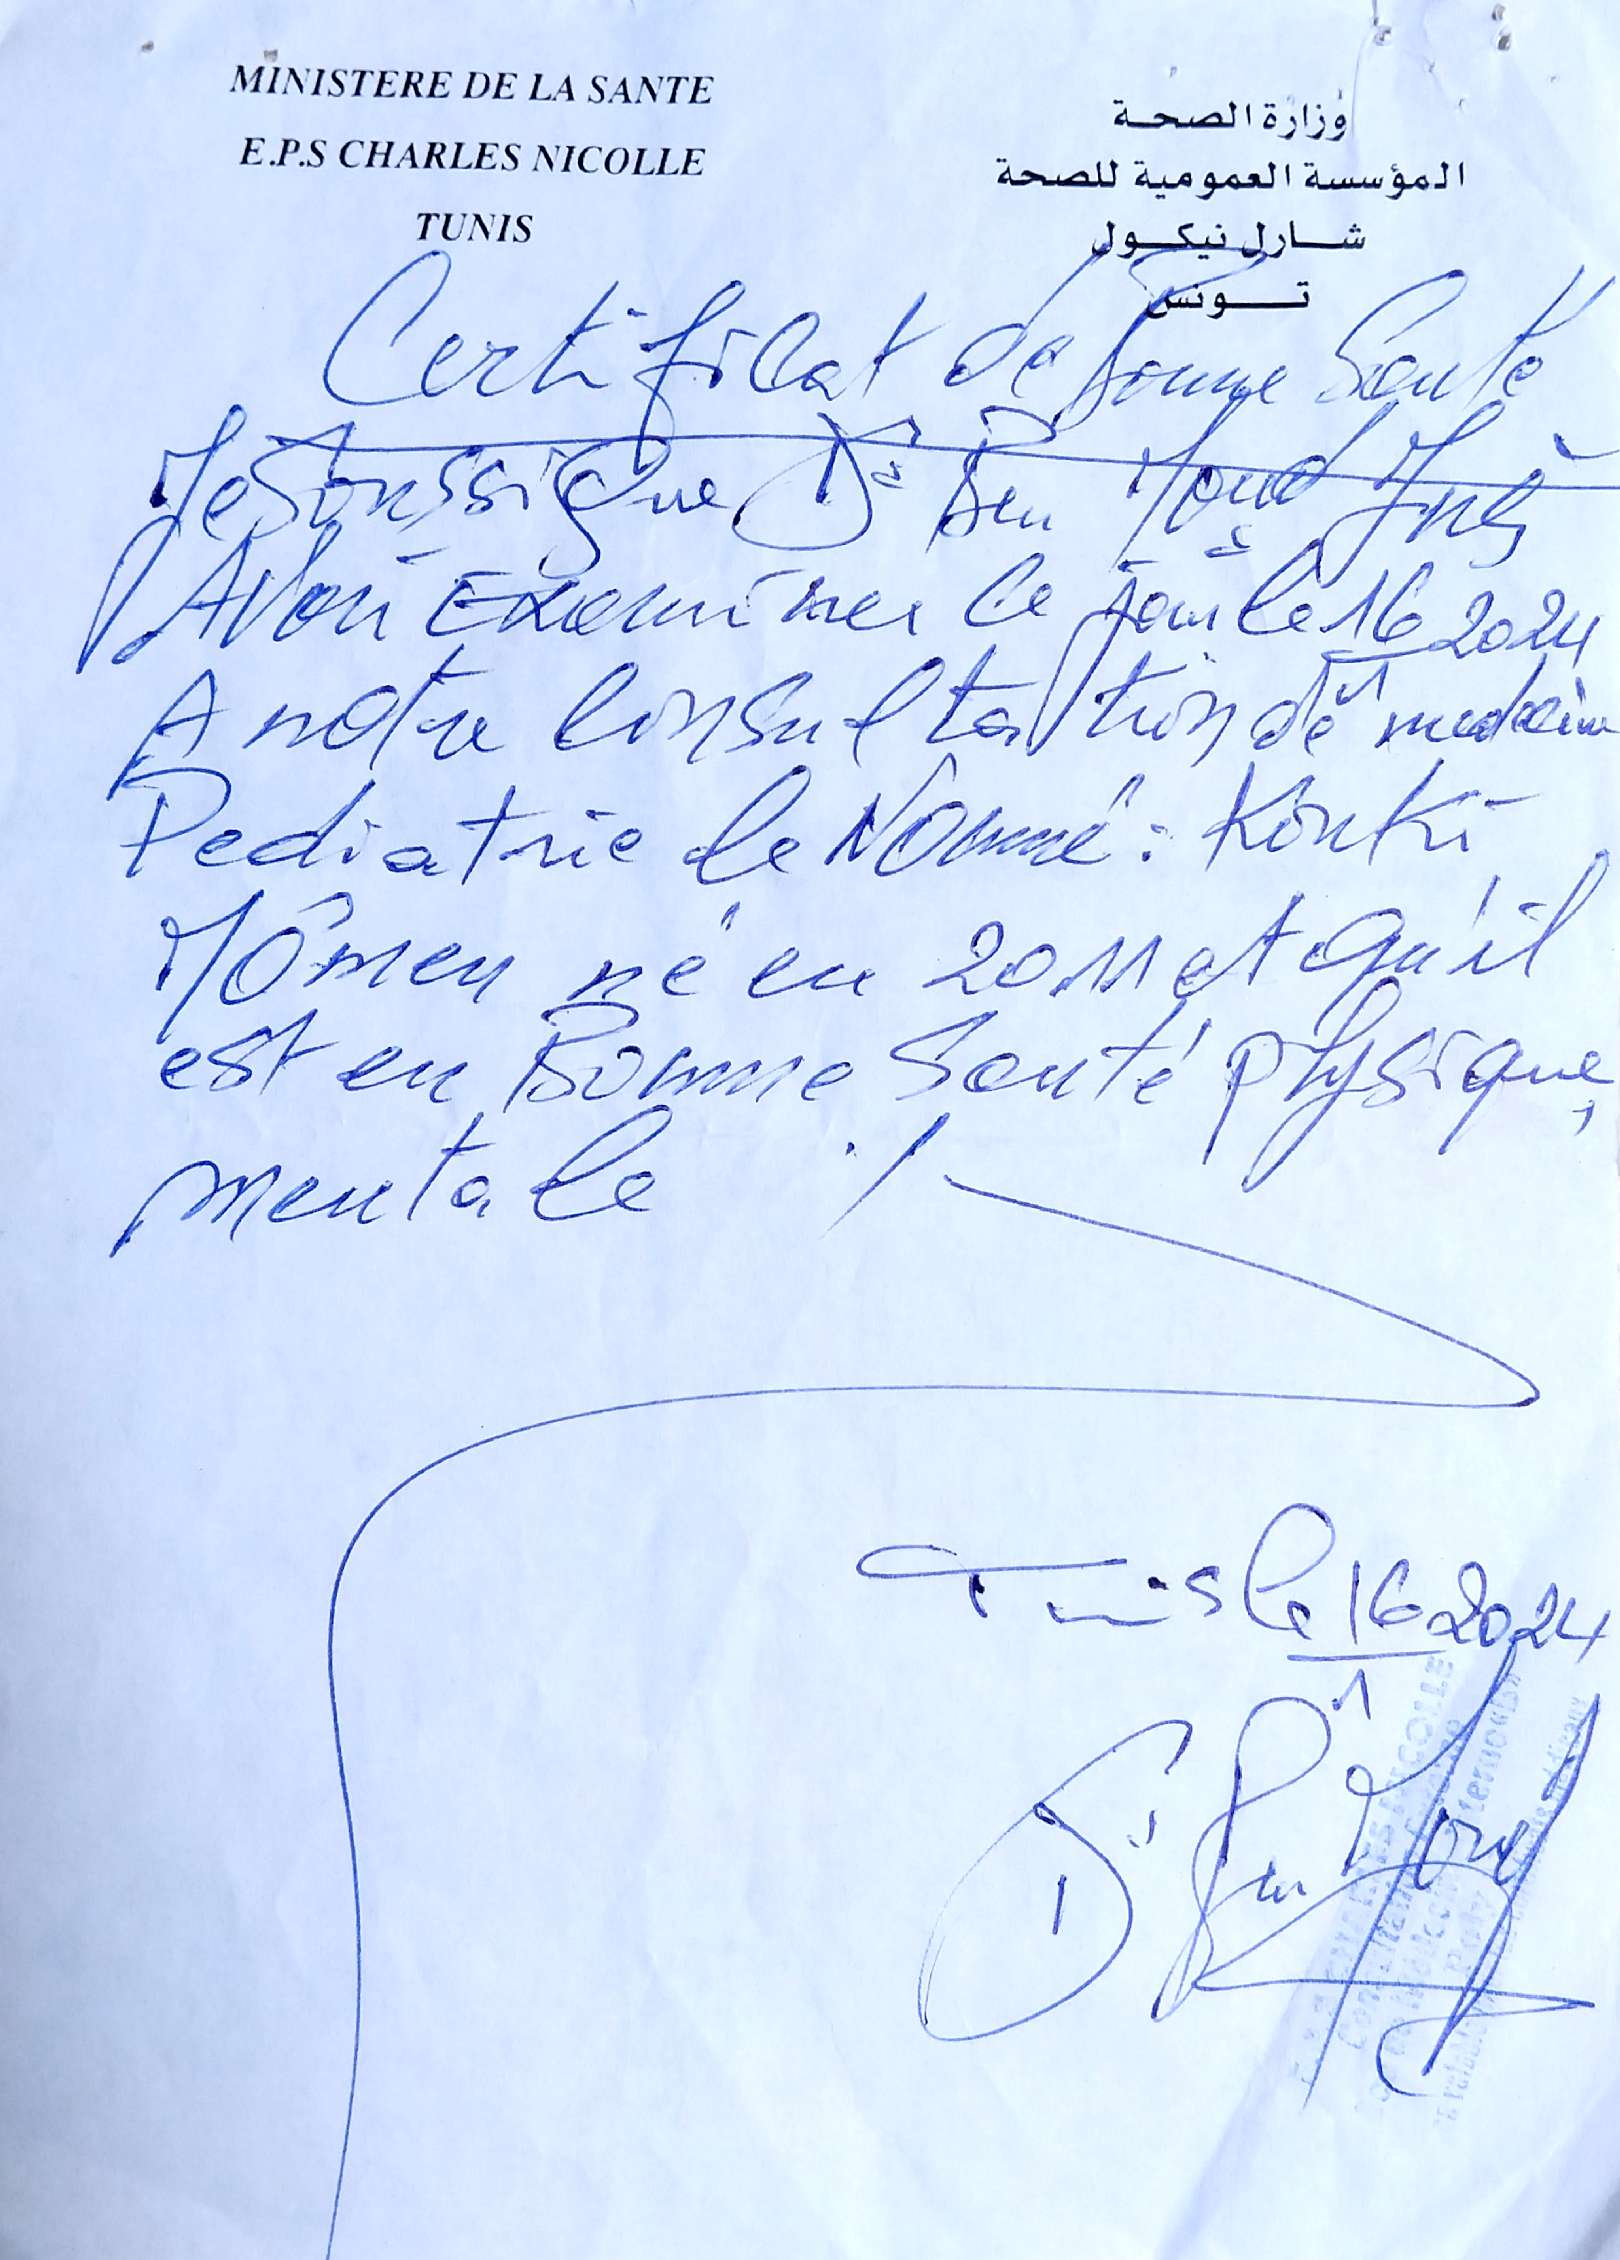 MINISTERE DE LA SANTE
E.P.S CHARLES NICOLLE
TUNIS
وزارة الصحة
المؤسسة العمومية للصحة
شارل نيكول
تونس
Certificat de Bonne Santé
Je Soussigne Dr Ben Inès
Avoir Examiner Ce jour le 16/1 2024
A notre Consultation de medecine
Pediatrie le Nommé : Konki
Mômen né en 2011 et qu'il
est en Bonne Santé physique,
mentale ./
Tunis le 16/1 2024
Dr Ben